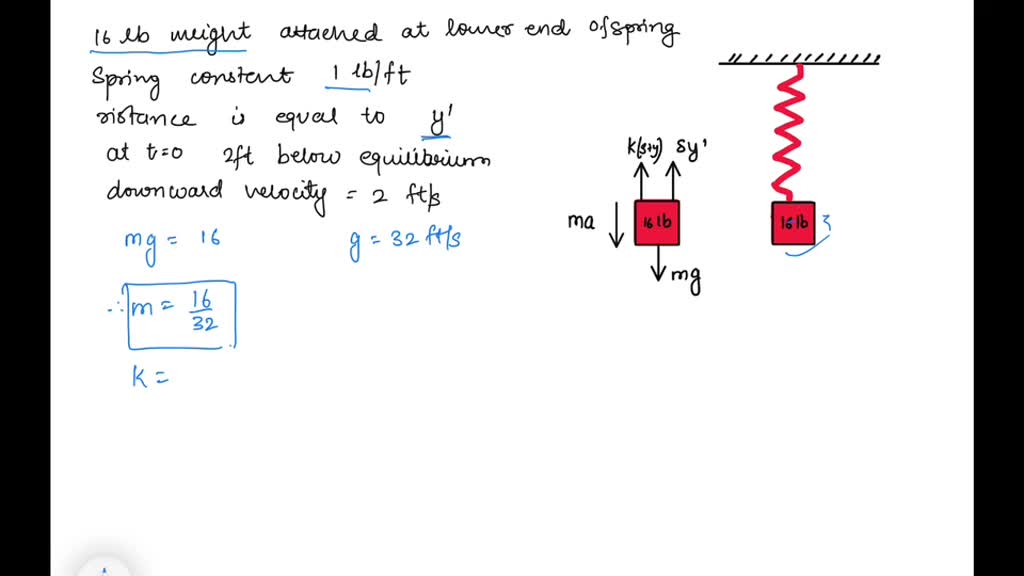 16 lb weight attached at lower end of spring
Spring constent 1 lb/ft
ristance is equal to y'
at t=0 2ft below equilibrium
downward velocity = 2 ft/s
mg = 16 g = 32 ft/s
∴ m = 16/32
K =
K(s+y) δy'
ma
16 lb
mg
16 lb